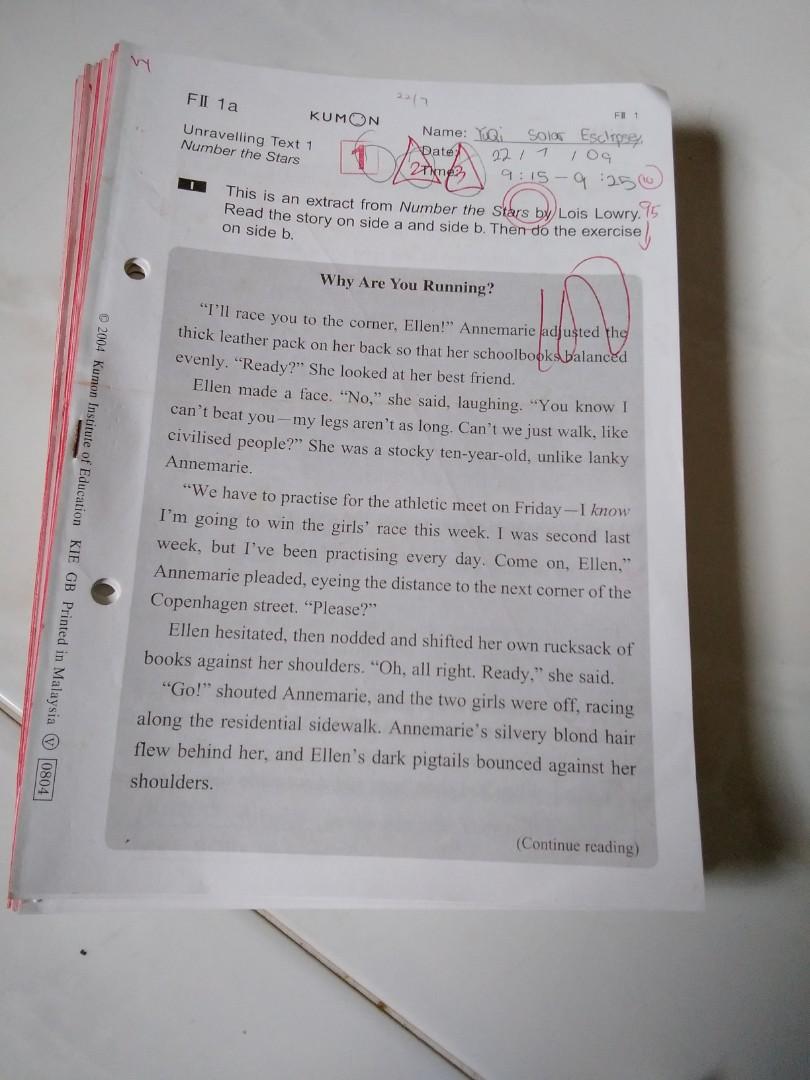 22/7
FII 1a
KUMON
FII 1
Unravelling Text 1
Number the Stars
Name: YuQi Solar Esclrpsey
Date: 22 / 7 / 09
Time: 9:15 - 9:25 10
1 2 3
95
1 This is an extract from Number the Stars by Lois Lowry.
Read the story on side a and side b. Then do the exercise
on side b.
100
Why Are You Running?
“I’ll race you to the corner, Ellen!” Annemarie adjusted the
thick leather pack on her back so that her schoolbooks balanced
evenly. “Ready?” She looked at her best friend.
Ellen made a face. “No,” she said, laughing. “You know I
can’t beat you—my legs aren’t as long. Can’t we just walk, like
civilised people?” She was a stocky ten-year-old, unlike lanky
Annemarie.
“We have to practise for the athletic meet on Friday—I know
I’m going to win the girls’ race this week. I was second last
week, but I’ve been practising every day. Come on, Ellen,”
Annemarie pleaded, eyeing the distance to the next corner of the
Copenhagen street. “Please?”
Ellen hesitated, then nodded and shifted her own rucksack of
books against her shoulders. “Oh, all right. Ready,” she said.
“Go!” shouted Annemarie, and the two girls were off, racing
along the residential sidewalk. Annemarie’s silvery blond hair
flew behind her, and Ellen’s dark pigtails bounced against her
shoulders.
(Continue reading)
© 2004 Kumon Institute of Education KIE GB Printed in Malaysia V 0804